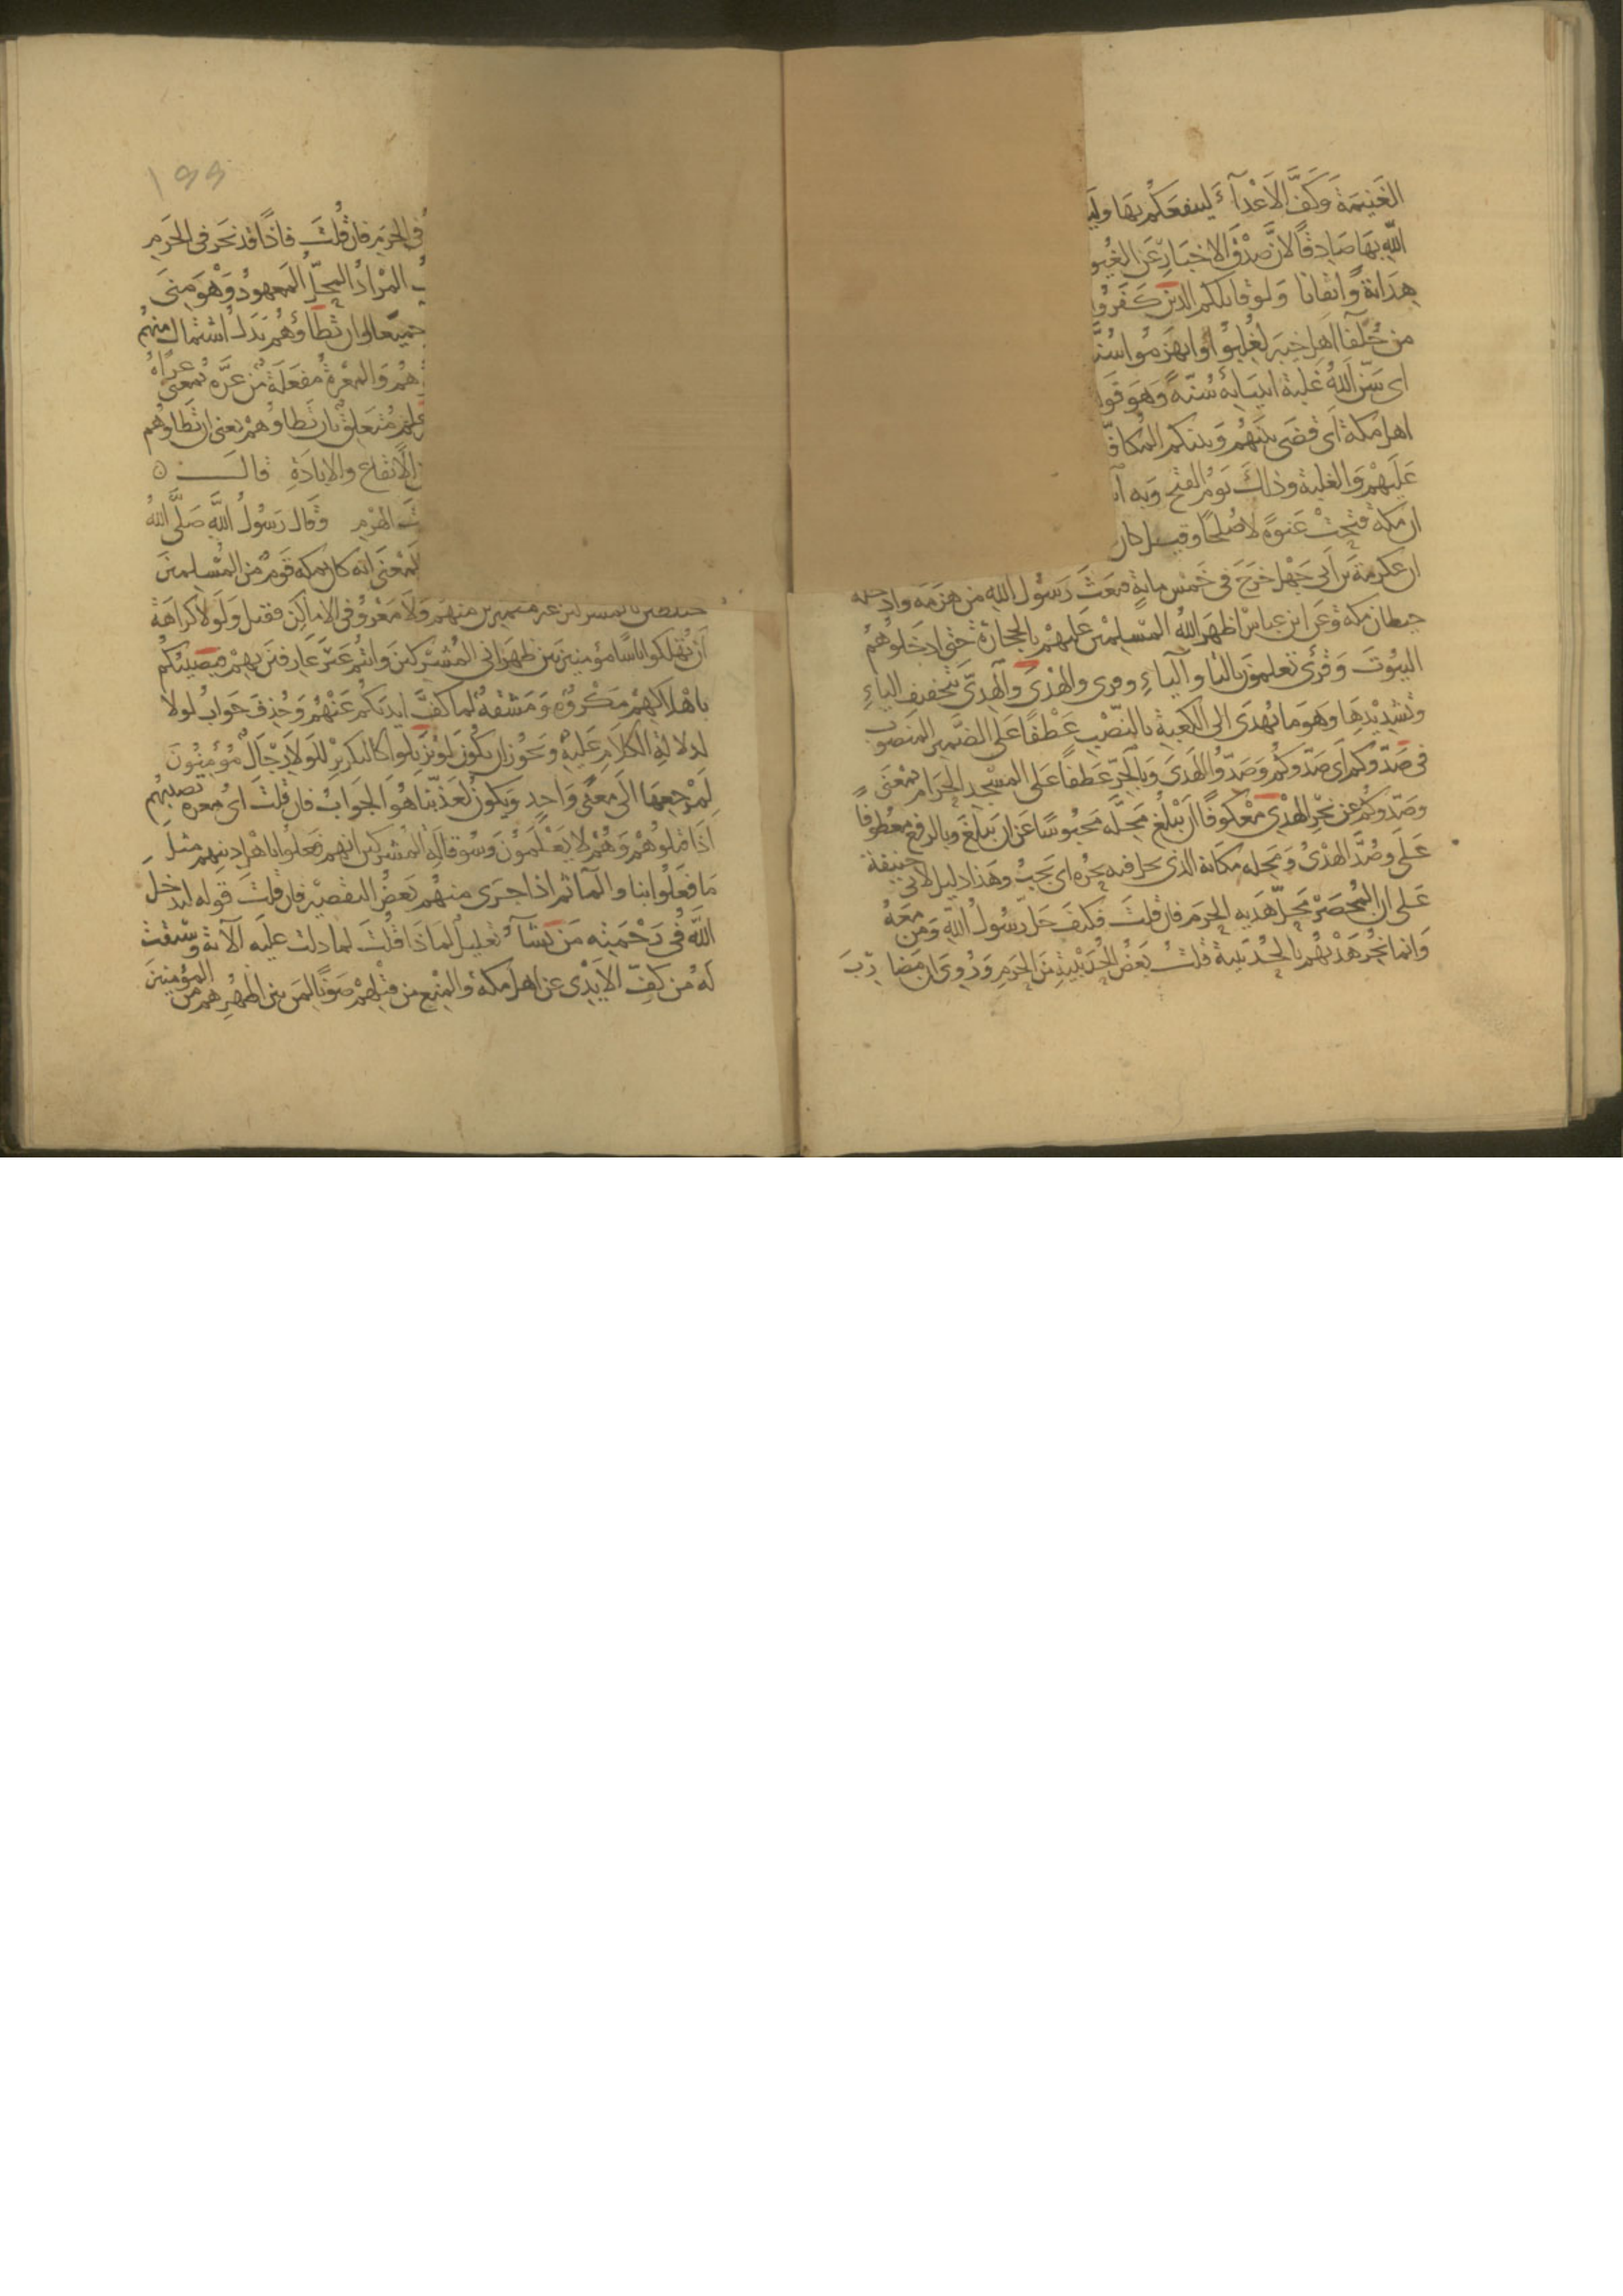 الغَنِيمَة وَكَفَّ الأَعْدَآءَ لينفعَكُم بهَا
اللّهِ بهَا صَادِقًا لانَّ صِدْقَ الاخبَارِ عَن الغيُو
هِدَايَة وَّايقانا وَلو قاتلكم الذين كَفَرُوا
من حُلفآ اهلِ خيبر لغُلِبُوْا وانهزمُوا سُنَّ
اى سَنَّ اللّهُ غلبة انبيَايه سُنّة وَهوَ
اهل مكة اى قضَى بَيْنهُم وَبينكم المُكافّ
عَليْهمْ وَالغلبة وذلكَ يَوْمُ الفَتح وبه
ان مكة فتحتْ عَنوَة لا صُلحًا وقيل كان
ان عكرمة بن أبى جَهْل خرَجَ فى خَمْس ماية فبَعَثَ رَسُول اللّهِ من هزمَه وادخله
حيطان مكة وعَن ابن عبَاسٍ اظهَرَ اللّهُ المسْلِمينَ عَليهمْ بالحجَارَة حَتى ادخَلوهُم
البيُوتَ وَقرئ تعلمونَ بالتا واليآءِ وقرى والهَدْىَ وَالهَدِىَّ بتخفيف الياءِ
وتشدِيْدِهَا وَهوَ مَا يُهدَى الى الكعبة بالنّصْبِ عَطْفًا على الضّميرِ المَنصُوب
فى صَدّوكم اى صَدّوكُمْ وَصَدّوا الهَدىَ وَبالجَرّ عَطفا عَلى المسْجد الحَرَام بمعْنى
وَصَدّوكم عن نحْر الهدْىِ مَعْكوفًا ان يبْلغَ مَحِلّه مَحبُوسًا عَن ان يَبلغَ وبالرفع معْطوفًا
عَلى وصُدَّ الهدْىُ وَمَحِله مكانه الذى يحل فيه نحرُه اى يَجبُ وهَذا دليل لابى حنيفة
عَلى ان المُحصَرَ مَحِلّ هَديه الحرَم فان قلتَ فكيْفَ حَل رّسُولُ اللّهِ وَمَن مَعَهُ
وَانما نُحِرَ هَدْيُهُم بالحُدَيبية قلتُ بَعْضُ الحُدَيْبيَةِ مِنَ الحَرَمِ وَرُوِىَ ان مَضارِبَ
١٩٩
فى الحَرَمِ فان قُلتَ فاذًا قد نحرَ فى الحَرَمِ
المُرَادُ المَحِلُّ المَعهودُ وَهْوَ مِنَى
جميعا وان تطأوهُم بَدَلُ اشتمال منهُم
هُم وَالمعَرةُ مَفعَلَةٌ مّن عَرَّهُ بمعنى عَرَاهُ
علم مُتعَلِقٌ بان تَطاوهُمْ يعنى ان تَطاوهُم
الايقاعِ والابادَةِ قالَ
الهَرْمِ وَقال رَسُولُ اللّهِ صَلَّى اللّهُ
المعْنى انه كان بمكه قومٌ من المسْلمينَ
مختلطين بالمشركين غير متميزين منهم وَلا مَعْروفى الاماكِن فقيل وَلَوْلا كرَاهَة
أنْ تُهْلكوا ناسًا مؤمنين بَين ظهرَانى المُشركينَ وانتم غَيْرُ عَارفينَ بهمْ فيُصيبَكُم
باهْلاكهمْ مَكْرُوهٌ وَمَشقةٌ لما كَفَّ ايديَكُم عَنهُمْ وَحُذِفَ جَوابُ لولا
لدلالة الكلام عَليْهِ وَيَجُوز ان يكونَ لَوْ تزيّلوا كالتكرير للَولا رجَالٌ مُؤمنونَ
لِمَرْجعِهمَا الَى مَعْنًى وَاحِدٍ وَيكونُ لَعَذّبْنَا هُوَ الجوابُ فان قلتَ اىُّ معرة تصيبُهُم
اذَا قتلوهُمْ وَهُمْ لا يَعْلمونَ وَسُو قالة المُشركينَ انهم فعلوا باهل دينهم مثلَ
مَا فعَلوا بنا والمآثم اذا جَرَى منهُم بَعضُ التقصِيْر فان قلتَ قوله ليدخلَ
اللّهُ فى رَحْمَتِه مَن يَشآءُ تعليلٌ لماذَا قُلتُ لمَا دلت عليه الآية وسيقتْ
لَهُ من كفِّ الايْدِى عن اهل مكة والمَنع من قتلِهمْ صَونًا لمَن بين اظهُرِهم من المؤمنينَ